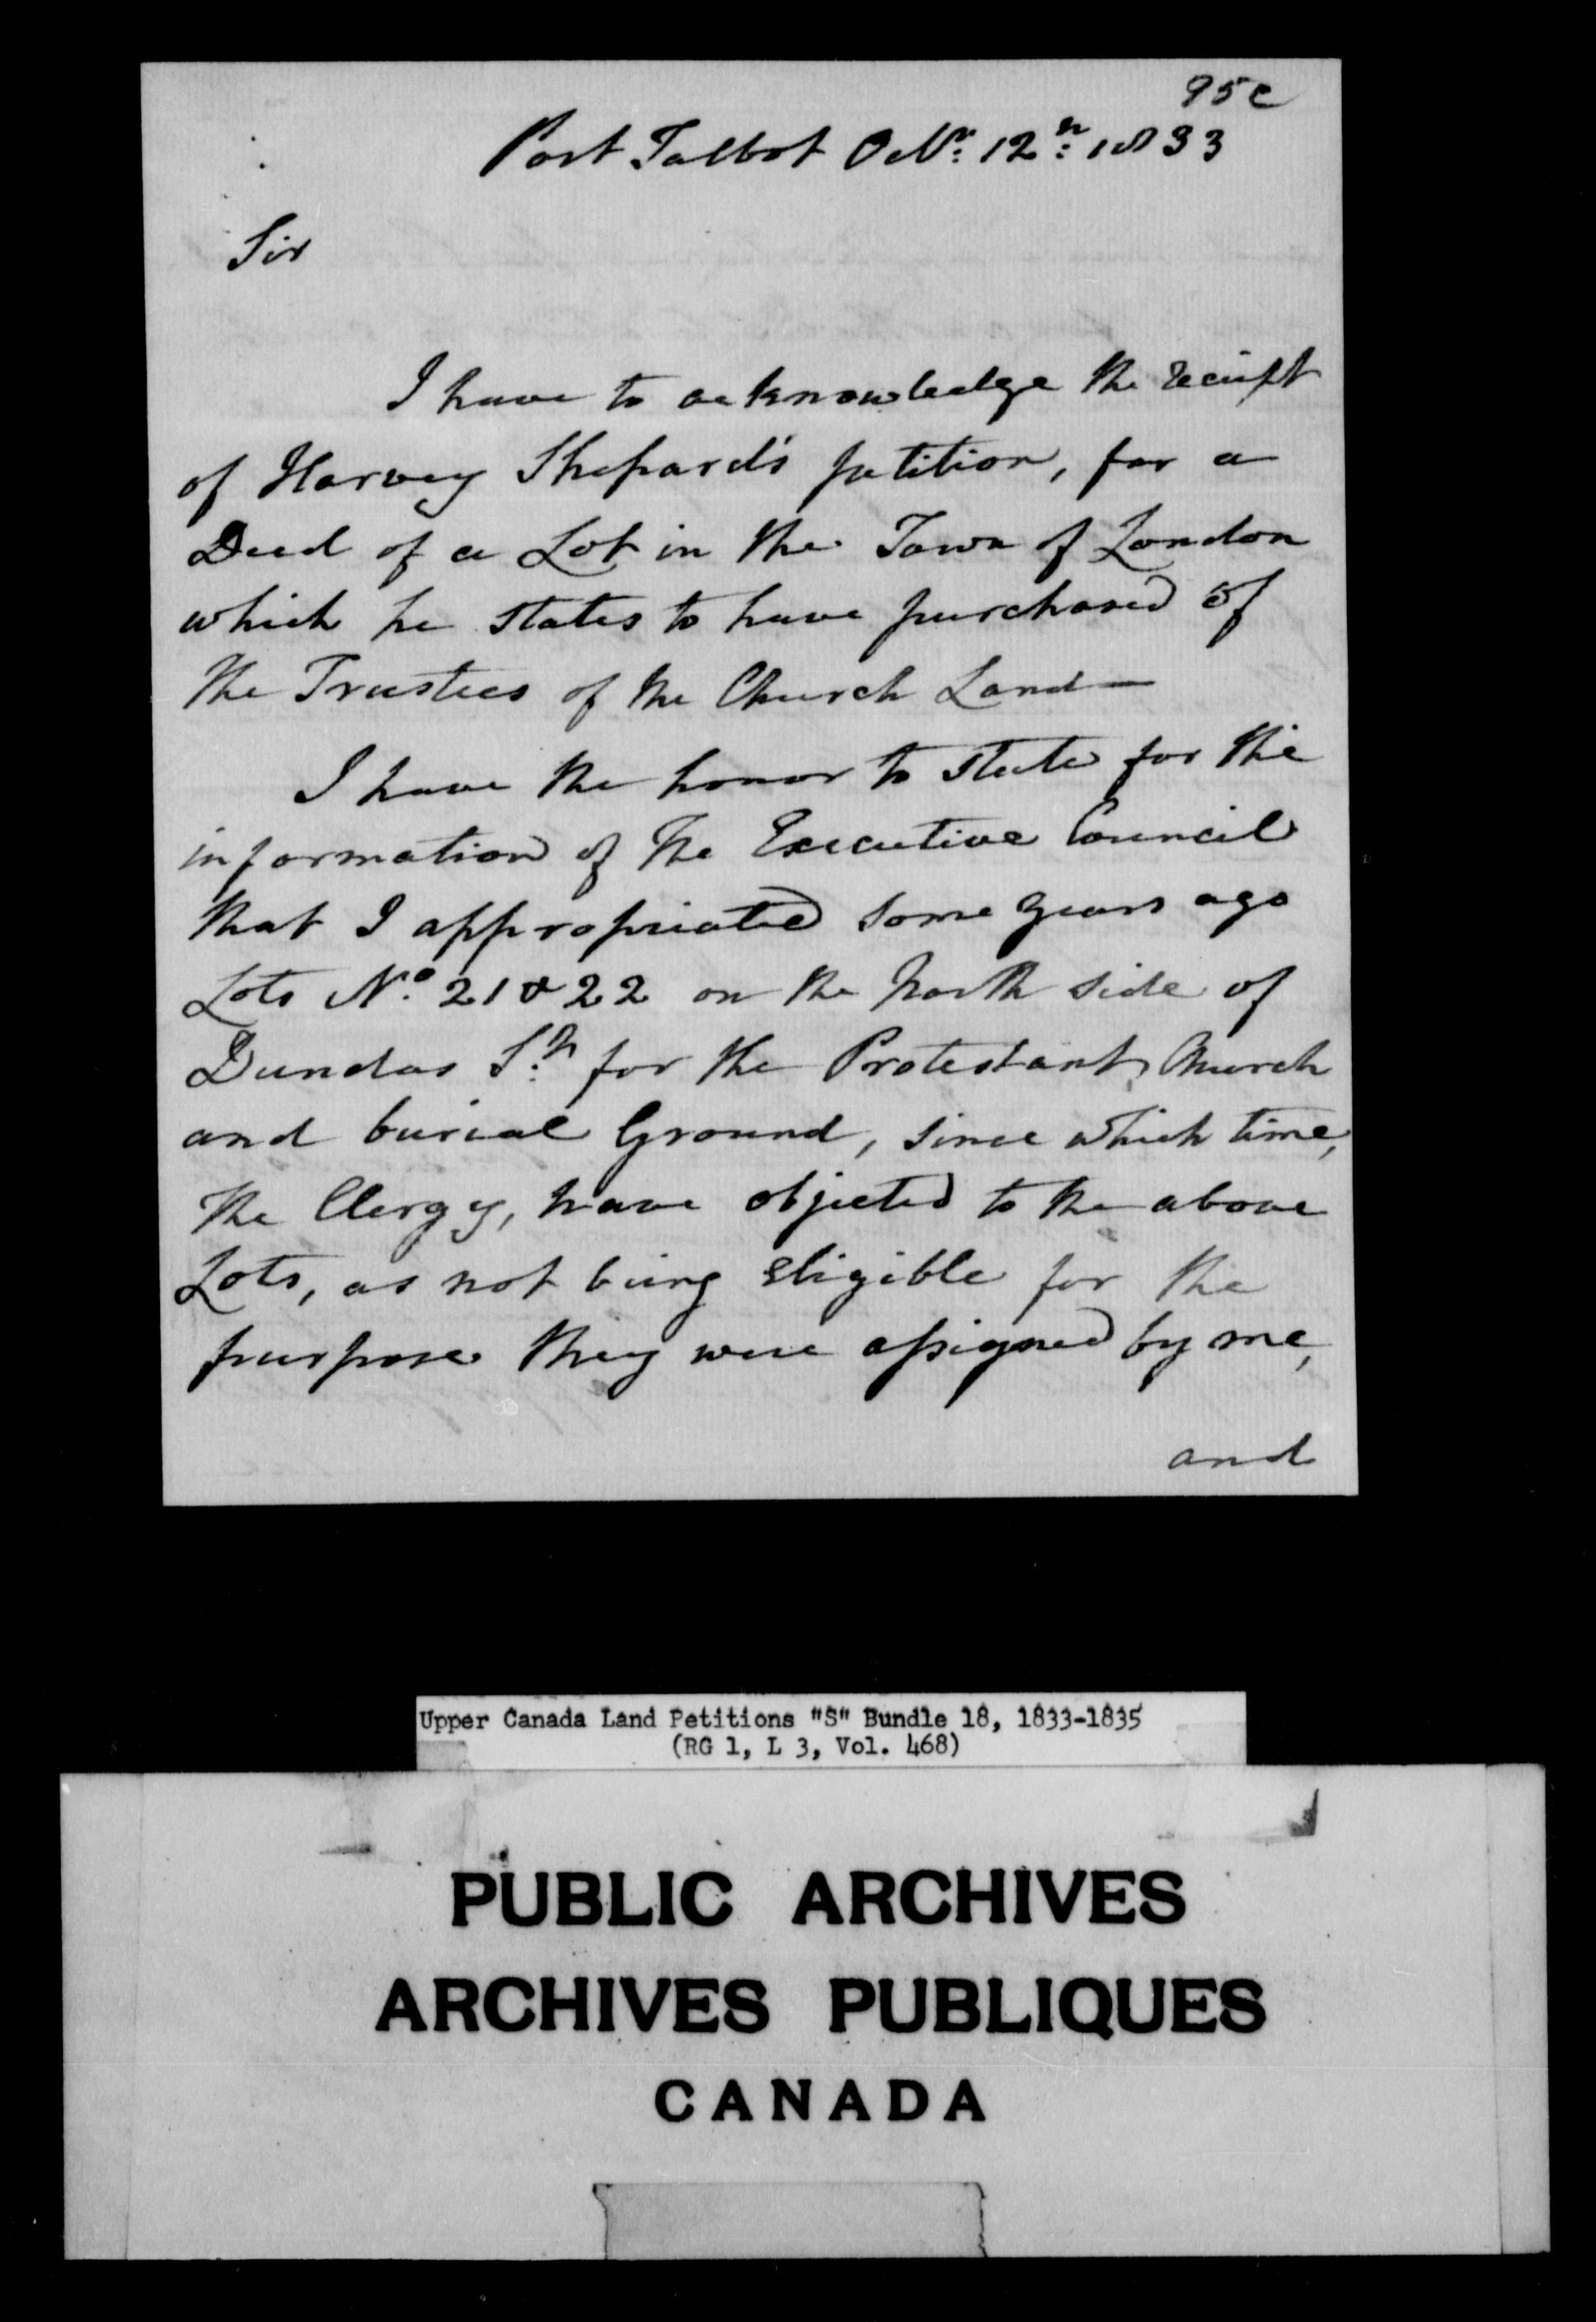 95c
Port Talbot Octr. 12th: 1833
Sir
I have to acknowledge the receipt
of Harvey Shepard's petition, for a
Deed of a Lot in the Town of London
which he states to have purchased of
the Trustees of the Church Land—
I have the honor to state for the
information of The Executive Council
that I appropriated some years ago
Lots No. 21 & 22 on the North side of
Dundas St: for the Protestant Church
and burial Ground, since which time,
the Clergy, have objected to the above
Lots, as not being eligible for the
purpose they were assigned by me,
and
Upper Canada Land Petitions "S" Bundle 18, 1833-1835
(RG 1, L 3, Vol. 468)
PUBLIC ARCHIVES
ARCHIVES PUBLIQUES
CANADA